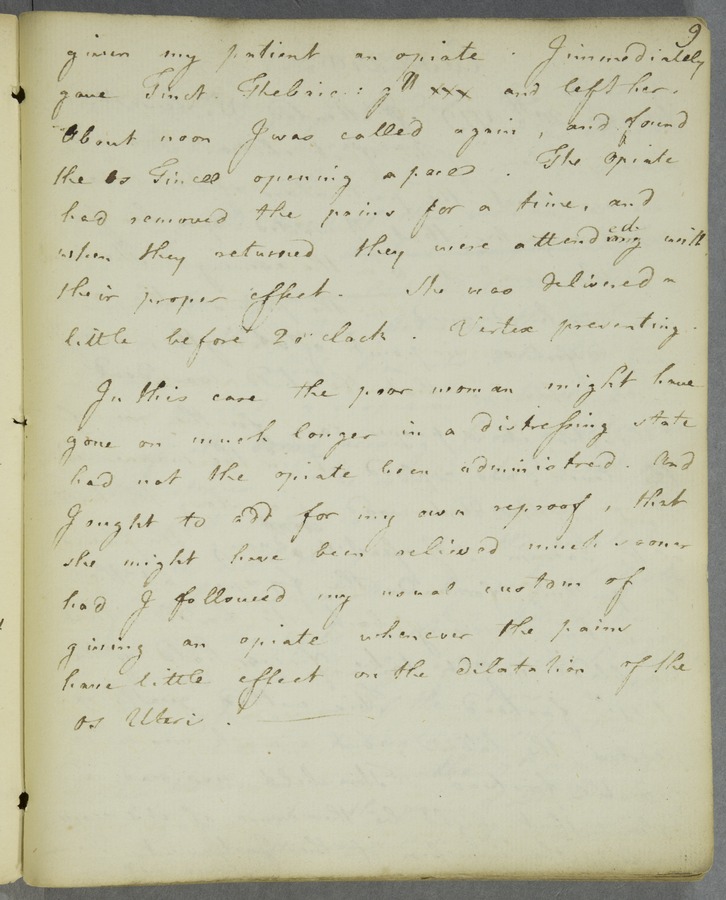 9
given my patient an opiate. I immediately
gave Tinct. Thebaic: gtt xxx and left her.
About noon I was called again, and found
the os Tincæ opening apace. The opiate
had removed the pains for a time, and
when they returned they were attended with
their proper effect. She was delivered a
little before 2 o'clock. Vertex presenting.
In this case the poor woman might have
gone on much longer in a distressing state
had not the opiate been administred. And
I ought to add for my own reproof, that
she might have been relieved much sooner
had I followed my usual custom of
giving an opiate whenever the pains
have little effect on the dilatation of the
os Uteri.